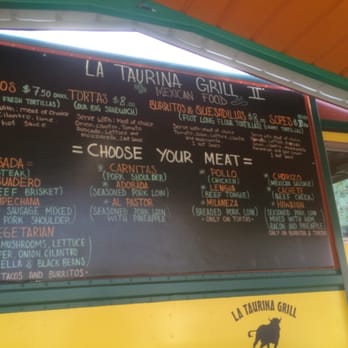 LA TAURINA GRILL II
MEXICAN FOOD
OS $7.50
FRESH TORTILLAS)
TORTAS $8.00
(OUR BIG SANDWICH)
BURRITOS & QUESADILLAS $8.00
(FOOT LONG FLOUR TORTILLAS)
SOPES
= CHOOSE YOUR MEAT =
SADA =
STEAK)
SUADERO
EEF BRISKET)
MPECHANA
SAUSAGE MIXED)
PORK SHOULDER)
VEGETARIAN
MUSHROOMS, LETTUCE
ONION CILANTRO
& BLACK BEANS)
TACOS AND BURRITOS
* CARNITAS
(PORK SHOULDER)
* ADOBADA
(SEASONED PORK LOIN)
* AL PASTOR
(SEASONED PORK LOIN
WITH PINEAPPLE)
* POLLO
(CHICKEN)
* LENGUA
(BEEF TONGUE)
* MILANEZA
(BREADED PORK LOIN)
- ONLY ON TORTAS -
* CHORIZO
(MEXICAN SAUSAGE)
* CACHETE
(BEEF CHEEK)
* HAWAIIAN
(SEASONED PORK LOIN
MIXED WITH HAM
BACON AND PINEAPPLE)
ONLY ON BURRITOS & TORTAS
LA TAURINA GRILL